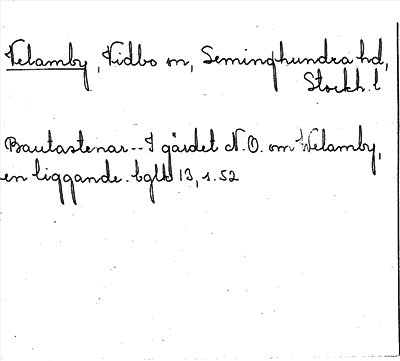 Velamby, Vidbo sn, Seminghundra hd,
Stockh. l
Bautastenar -- I gärdet N.O. om Welamby,
en liggande. bglb 13, s. 52